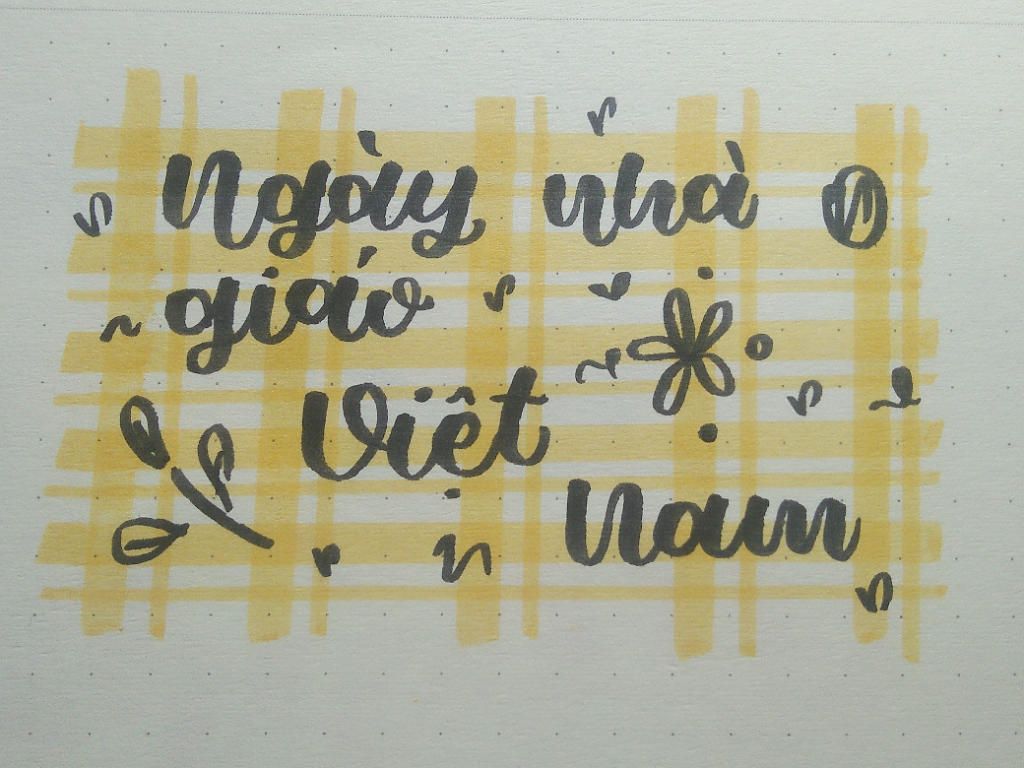 Ngày nhà
giáo
Việt
Nam